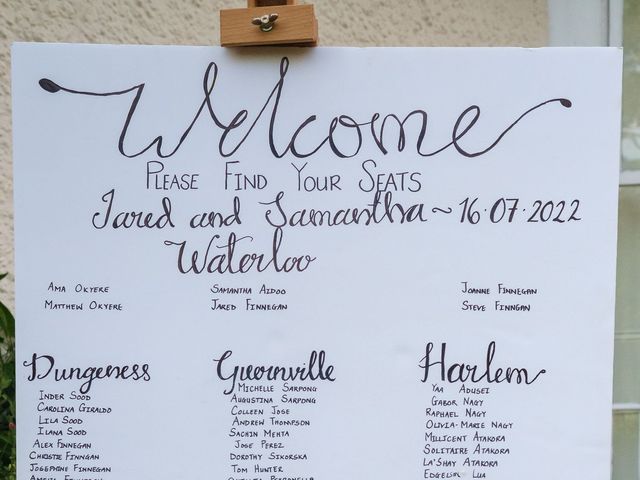 Welcome
PLEASE FIND YOUR SEATS
Jared and Samantha ~ 16.07.2022
Waterloo
AMA OKYERE SAMANTHA AIDOO JOANNE FINNEGAN
MATTHEW OKYERE JARED FINNEGAN STEVE FINNGAN
Dungeness
INDER SOOD
CAROLINA GIRALDO
LILA SOOD
ILANA SOOD
ALEX FINNEGAN
CHRISTIE FINNGAN
JOSEPHINE FINNEGAN
Guernville
MICHELLE SARPONG
AUGUSTINA SARPONG
COLLEEN JOSE
ANDREW THOMPSON
SACHIN MEHTA
JOSE PEREZ
DOROTHY SIKORSKA
TOM HUNTER
Harlem
YAA ADUSEI
GABOR NAGY
RAPHAEL NAGY
OLIVIA-MARIE NAGY
MILLICENT ATAKORA
SOLITAIRE ATAKORA
LA'SHAY ATAKORA
LUA